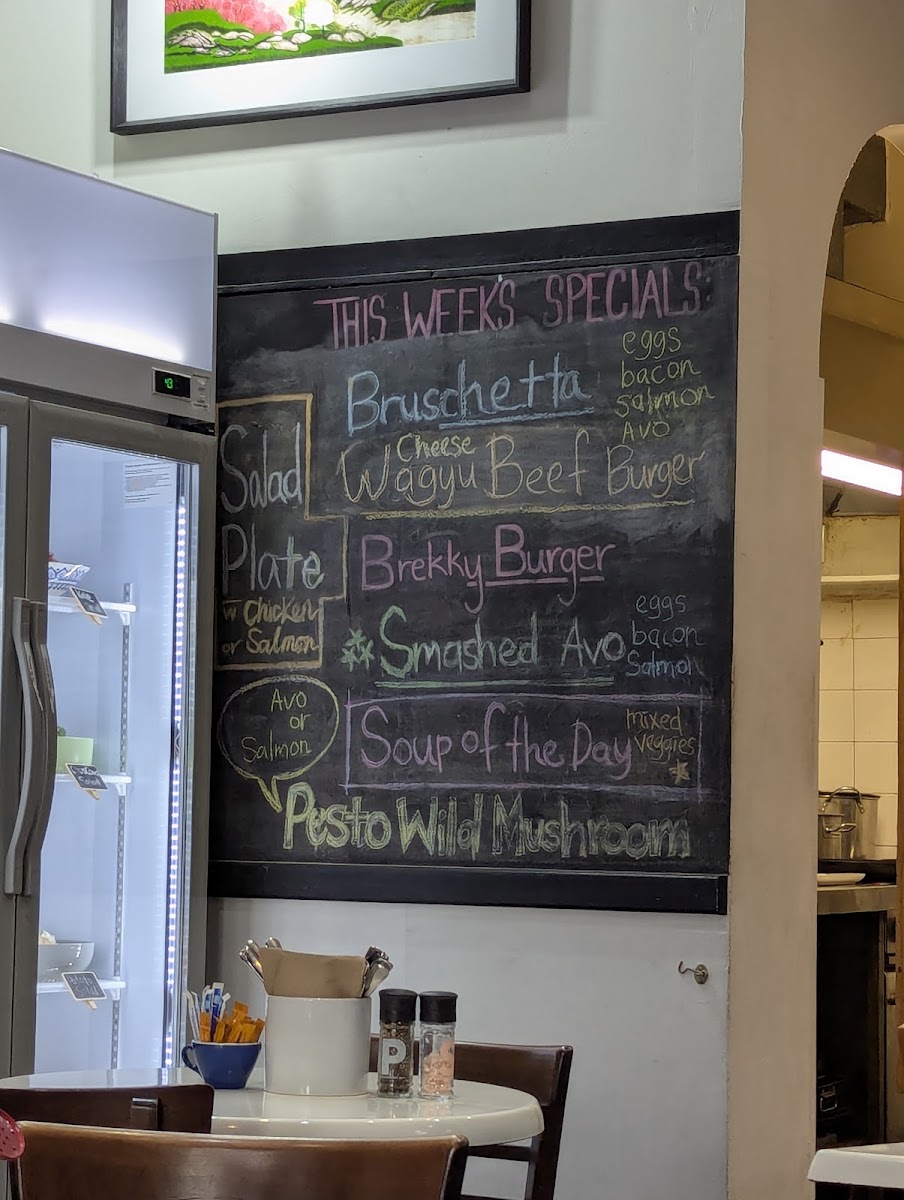 THIS WEEK'S SPECIALS:
Bruschetta
eggs
bacon
salmon
Avo
Cheese
Wagyu Beef Burger
Salad
Plate
w Chicken
or Salmon
Brekky Burger
Smashed Avo
eggs
bacon
Salmon
Avo
or
Salmon
Soup of the Day
mixed
veggies
Pesto Wild Mushroom
P